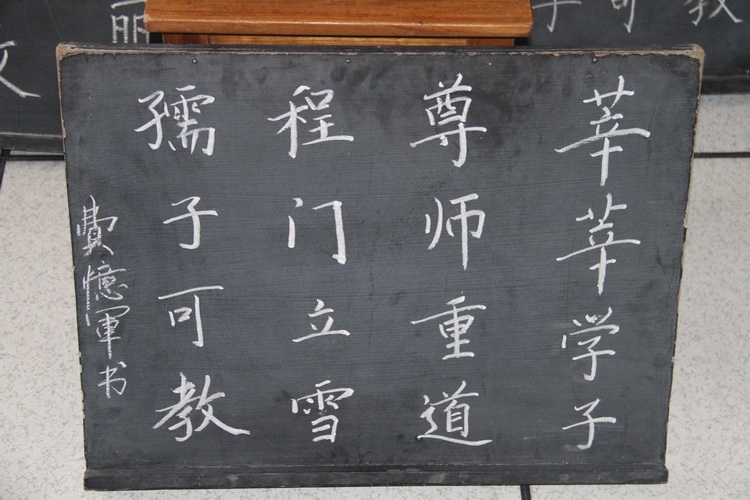 莘莘学子
尊师重道
程门立雪
孺子可教
费憶軍书